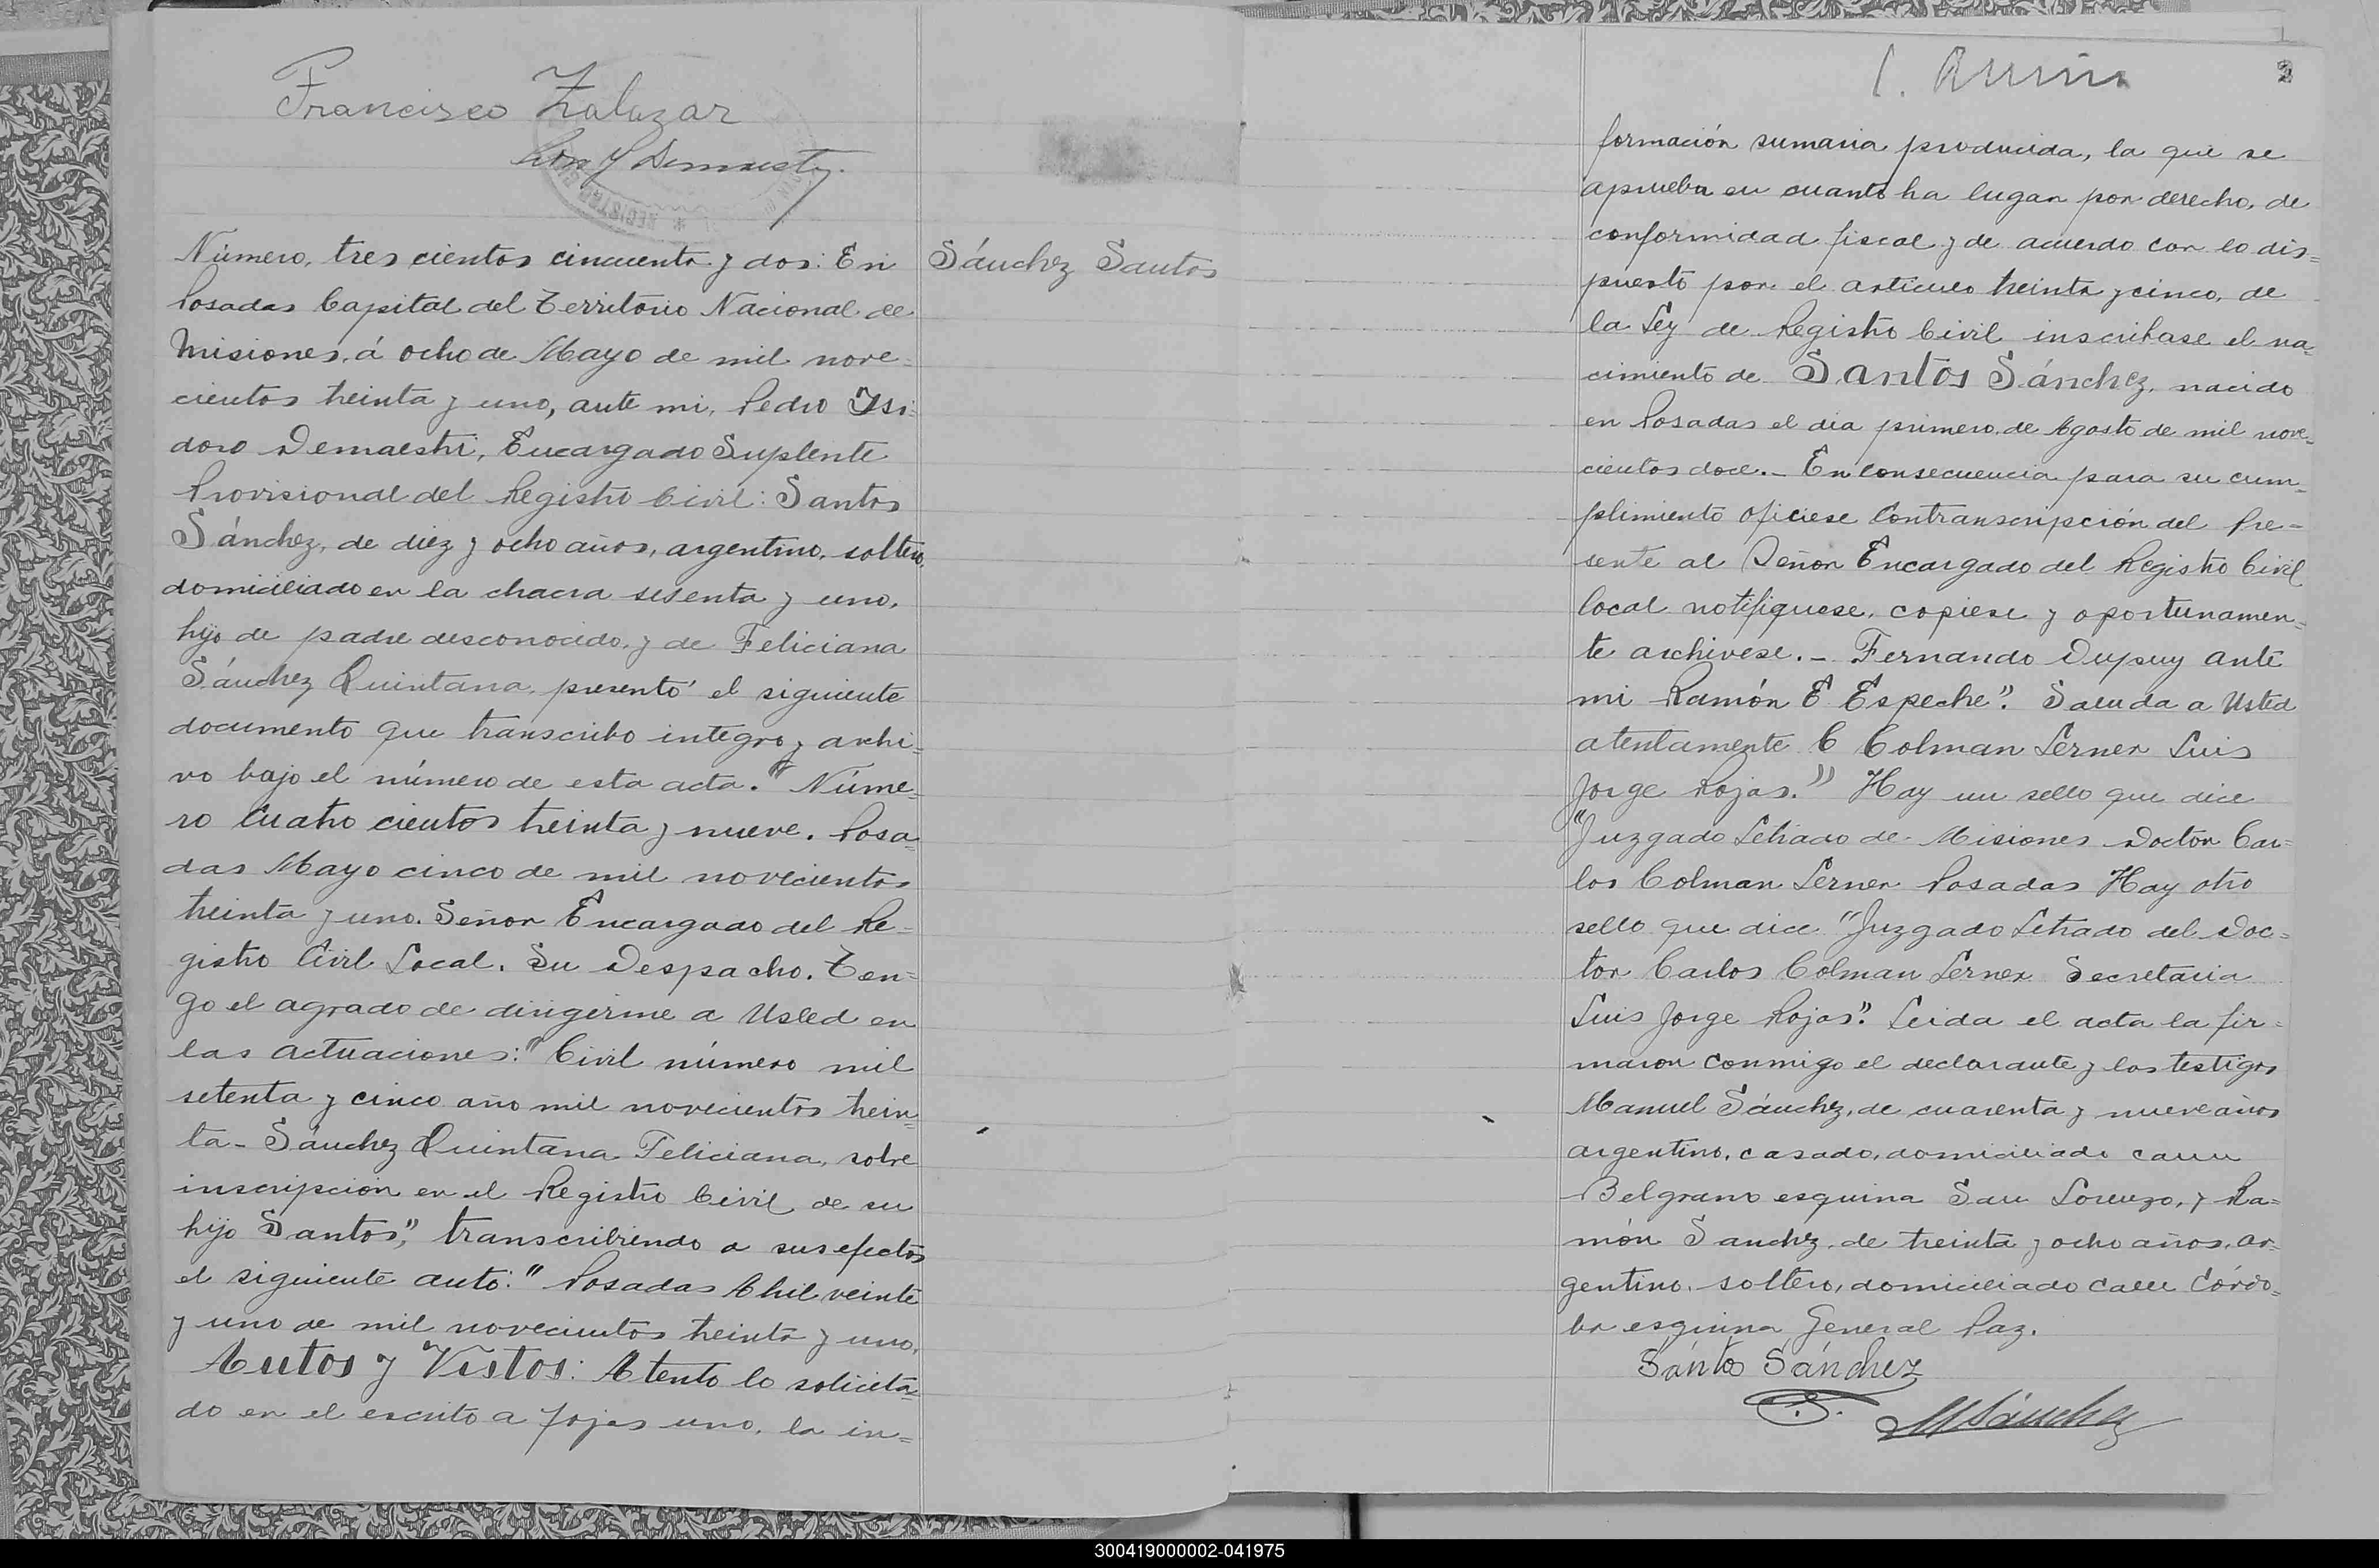 Francisco Zalazar
Número, tres cientos cincuenta y dos: En
Posadas Capital del Territorio Nacional de
Misiones, á ocho de Mayo de mil nove-
cientos treinta y uno, ante mi, Pedro Isi-
doro Demaestri, Encargado Suplente
Provisional del Registro Civil: Santos
Sánchez, de diez y ocho años, argentino, soltero,
domiciliado en la chacra sesenta y uno,
hijo de padre desconocido, y de Feliciana
Sánchez Quintana, presentó el siguiente
documento que transcribo integro y archi-
vo bajo el número de esta acta. "Núme-
ro Cuatro cientos treinta y nueve. Posa-
das Mayo cinco de mil novecientos
treinta y uno. Señor Encargado del Re-
gistro Civil Local. Su Despacho. Ten-
go el agrado de dirigirme a Usted en
las actuaciones: "Civil número mil
setenta y cinco año mil novecientos trein-
ta - Sánchez Quintana Feliciana, sobre
inscripción en el Registro Civil de su
hijo Santos", transcribiendo a sus efectos
el siguiente auto: "Posadas Abril veinte
y uno de mil novecientos treinta y uno.
Autos y Vistos: Atento lo solicita-
do en el escrito a fojas uno, la in-
Sánchez Santos
formación sumaria producida, la que se
aprueba en cuanto ha lugar por derecho, de
conformidad fiscal y de acuerdo con lo dis-
puesto por el articulo treinta y cinco, de
la Ley de Registro Civil inscribase el na-
cimiento de Santos Sánchez, nacido
en Posadas el dia primero de Agosto de mil nove-
cientos doce. - En consecuencia para su cum-
plimiento oficiese Contranscripción del Pre-
sente al Señor Encargado del Registro Civil
local notifiquese, copiese y oportunamen-
te archivese. - Fernando Dupuy ante
mi Ramón E Espeche". Saluda a Usted
atentamente C Colman Lerner Luis
Jorge Rojas." Hay un sello que dice
"Juzgado Letrado de Misiones Doctor Car-
los Colman Lerner Posadas Hay otro
sello que dice "Juzgado Letrado del Doc-
tor Carlos Colman Lerner Secretaria
Luis Jorge Rojas". Leida el acta la fir-
maron conmigo el declarante y los testigos
Manuel Sánchez, de cuarenta y nueve años
argentino, casado, domiciliado calle
Belgrano esquina San Lorenzo, y Ra-
món Sanchez, de treinta y ocho años, ar-
gentino, soltero, domiciliado calle Córdo-
ba esquina General Paz.
Sánto Sánchez
MSánchez
300419000002-041975